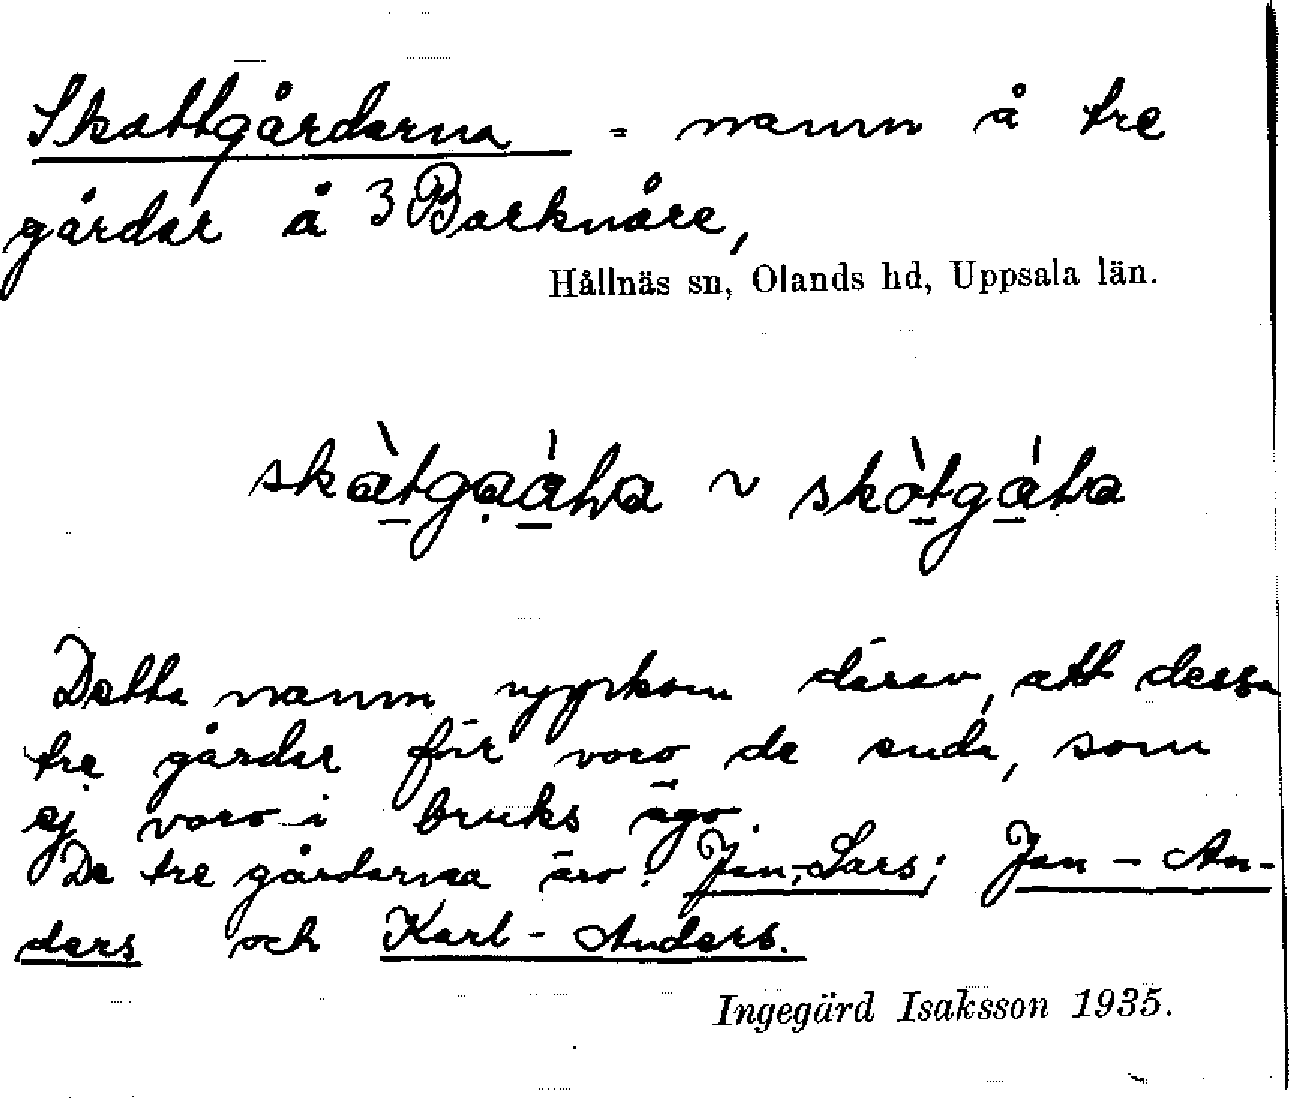 Skattgårderna = namn å tre
gårdar å 3 Barknåre,
Hållnäs sn, Olands hd, Uppsala län.
~
Detta namn uppkom därav, att dessa
tre gårdar förr voro de enda, som
ej voro i bruks ägo.
De tre gårdarna äro: Jan-Lars; Jan-An-
ders och Karl-Anders.
Ingegärd Isaksson 1935.